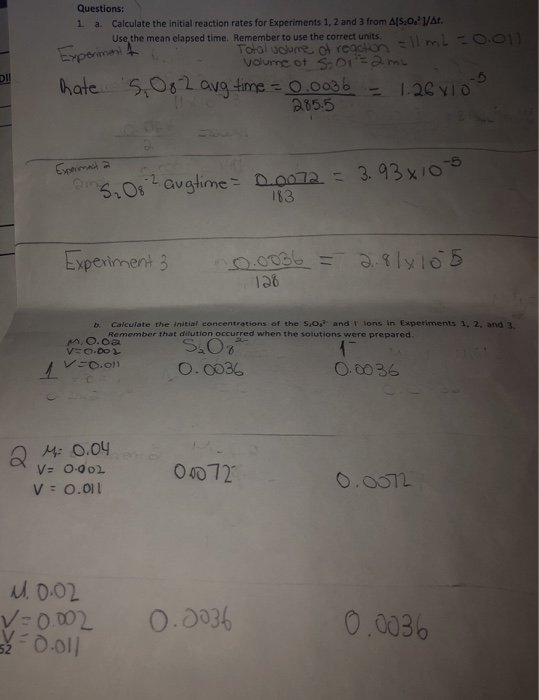 Questions:
1. a. Calculate the initial reaction rates for Experiments 1, 2 and 3 from Δ[S₂O₈²⁻]/Δt.
Use the mean elapsed time. Remember to use the correct units.
Experiment 1
Total volume of reaction = 11 mL = 0.011
volume of S₂O₈²⁻ = 2mL
Rate S₂O₈⁻² avg time = 0.0036 / 285.5 = 1.26 x 10⁻⁵
Experiment 2
S₂O₈⁻² avg time = 0.0072 / 183 = 3.93 x 10⁻⁵
Experiment 3 0.0036 / 128 = 2.81 x 10⁻⁵
b. Calculate the initial concentrations of the S₂O₈²⁻ and I⁻ ions in Experiments 1, 2, and 3.
Remember that dilution occurred when the solutions were prepared.
M: 0.02
V=0.002
S₂O₈²⁻ I⁻
1 V=0.011 0.0036 0.0036
2 M: 0.04
V= 0.002 0.0072 0.0072
V = 0.011
M. 0.02
V=0.002 0.0036 0.0036
V=0.011
52